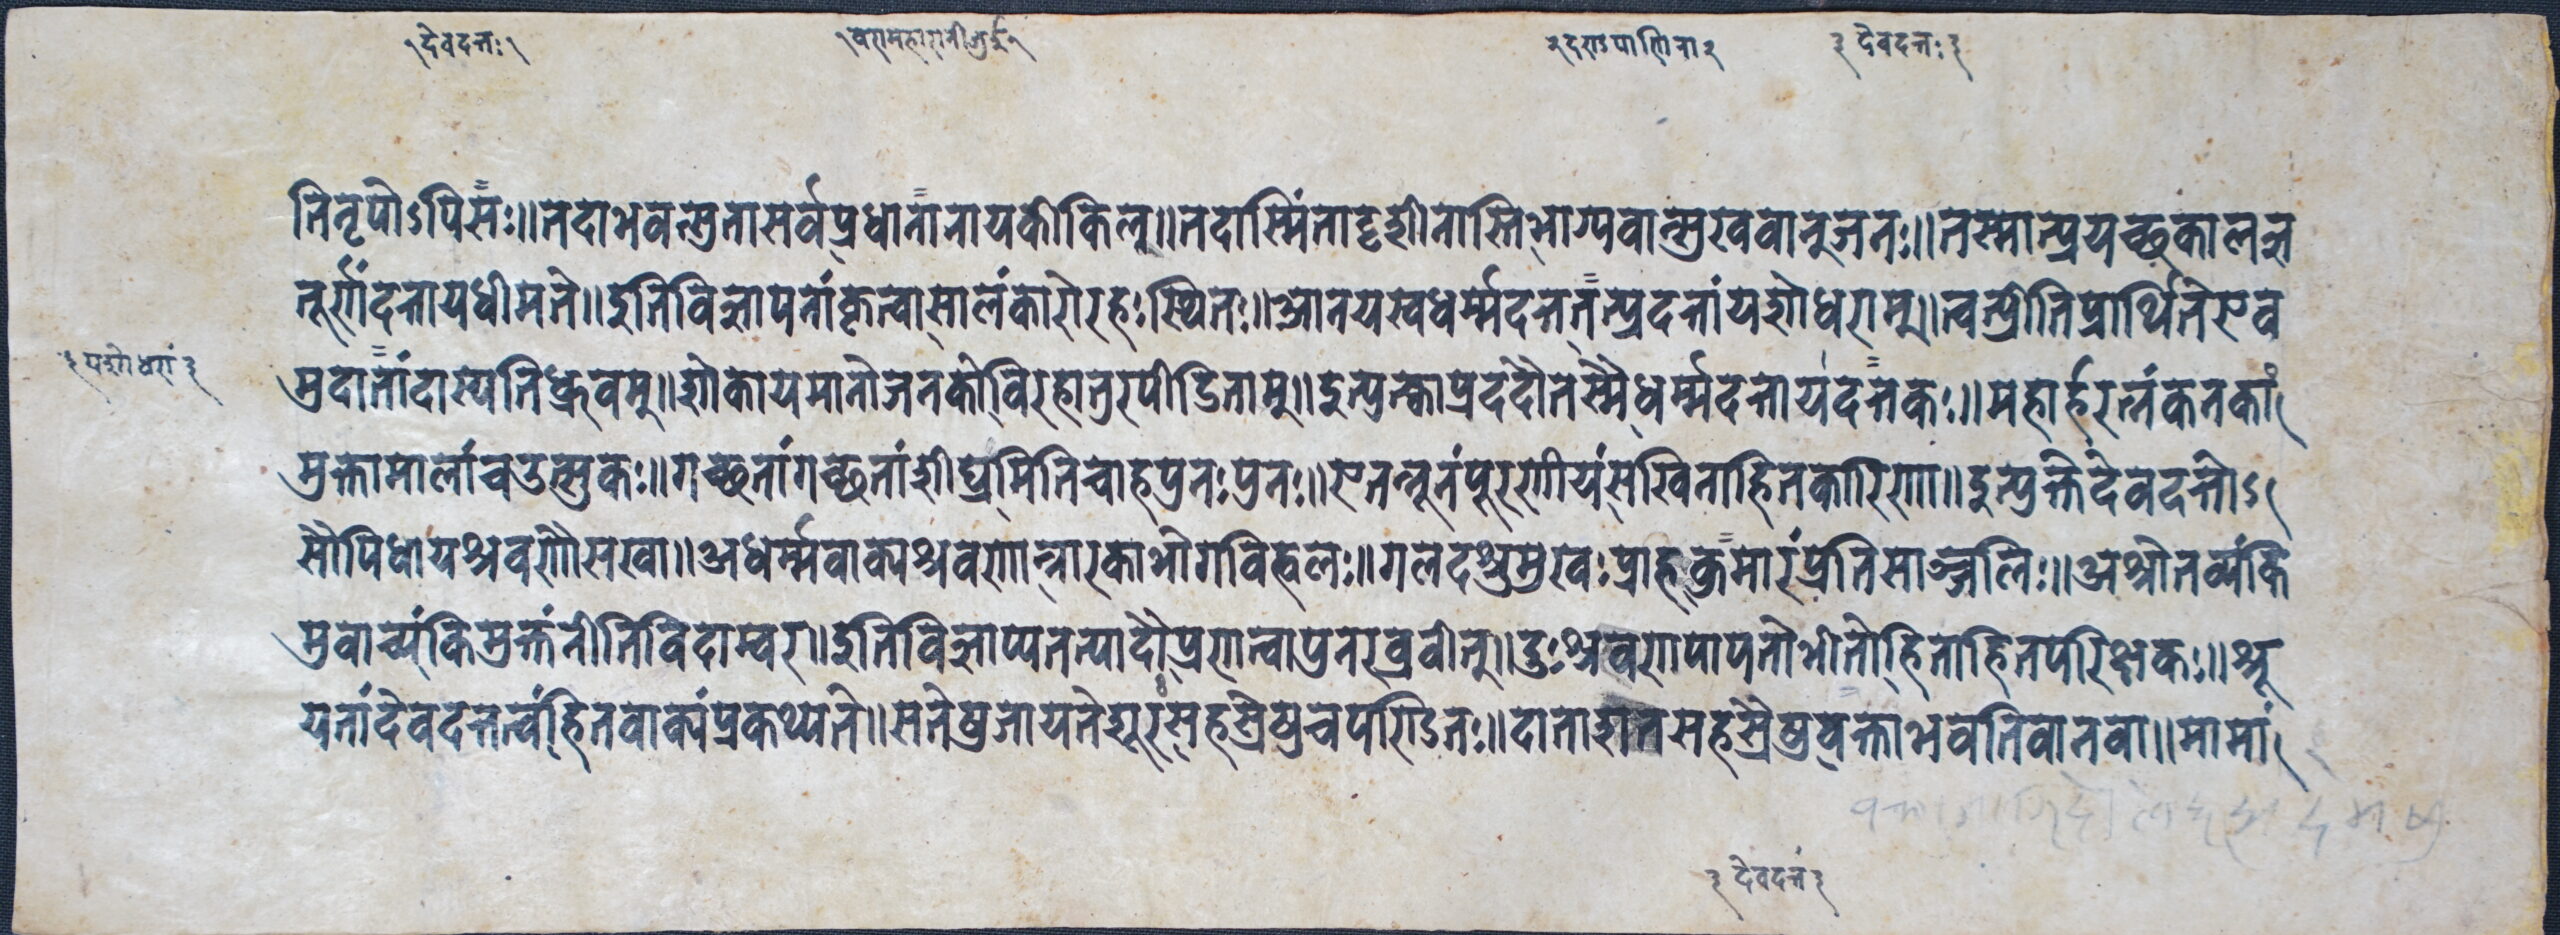 १देवदत्तः१
१वरामहारानीभुर्द्ध१
२दण्डपाणिना२
३देवदत्तः३
तिनृपोऽपिसः॥तदाभवत्सुतासर्वप्रधानानायकीकिल॥तदास्मिंतादृशोनास्तिभाग्यवान्सुखवान्जनः॥तस्मात्प्रयच्छकालज्ञ
तूर्णंदत्तायधीमते॥इतिविज्ञापनांकृत्वासालंकारोरहःस्थितः॥आनयस्वधर्म्मदत्ततत्प्रदत्तांयशोधराम्॥त्वत्प्रीतिप्रार्थितेएव
प्रदानांदास्यतिध्रुवम्॥शोकायमानोजनकोविरहातुरपीडिताम्॥इत्युक्त्वाप्रददौतस्मैधर्म्मदत्तायदत्तकः॥महार्हरत्नंकनकां
३यशोधरां३
मुक्तामालांचउत्सुकः॥गच्छतांगच्छतांशीघ्रमितिचाहपुनःपुनः॥एतन्नूनंपूरणीयंसखिनाहितकारिणा॥इत्युक्तेदेवदत्तोऽ
सौपिधायश्रवणौसखा॥अधर्म्मवाक्यश्रवणान्नारकाभोगविह्वलः॥गलदश्रुमुखःप्राहकुमारंप्रतिसाञ्जलिः॥अश्रोतव्यंकि
मुवाच्यंकिमुक्तंनीतिविदाम्वर॥इतिविज्ञाप्यतत्पादौप्रणत्वापुनरव्रवीत्॥दुःश्रवणपापतोभीतोहिताहितपरिक्षकः॥श्रू
यतांदेवदत्तत्वंहितवाक्यंप्रकथ्यते॥सतेषुजायतेशूरसहस्रेषुचपण्डितः॥दाताशतसहस्रेषुवक्ताभवतिवानवा॥मामां
३देवदत्तं३